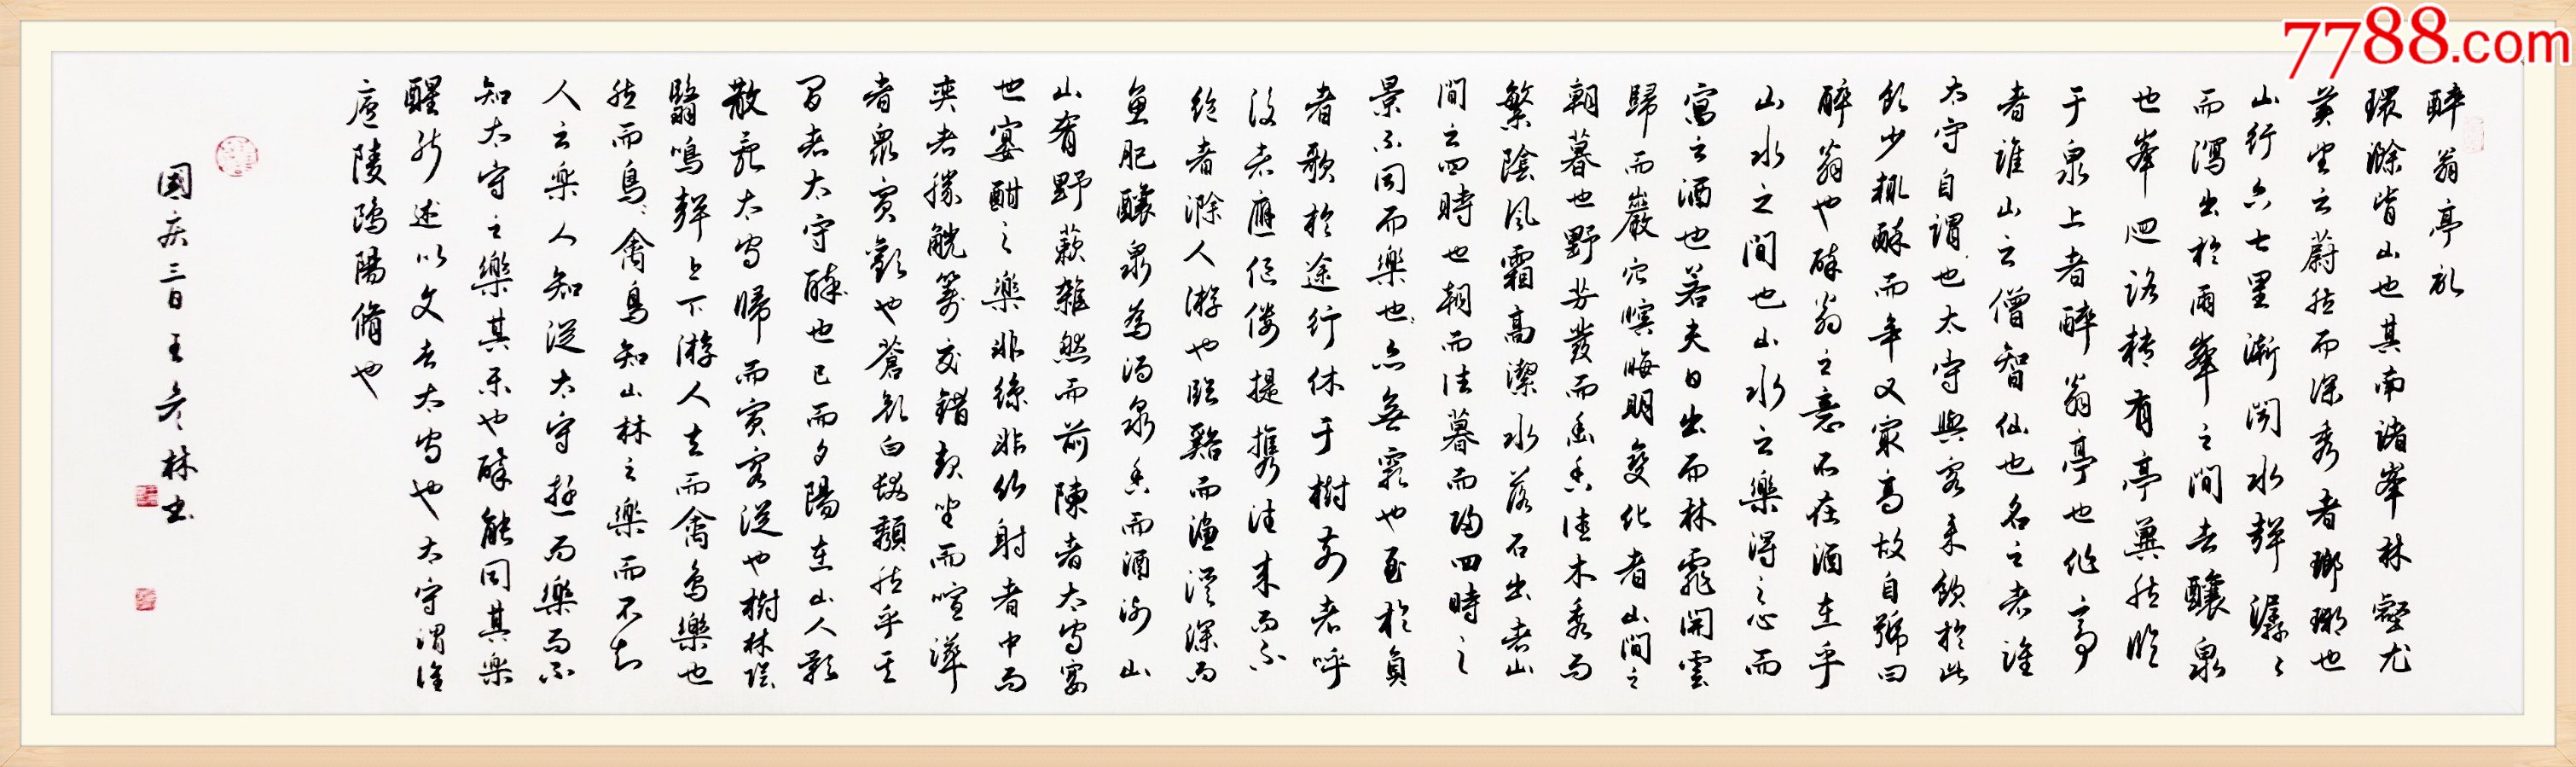 7788.com
醉翁亭記
環滁皆山也其南諸峯林壑尤
美望之蔚然而深秀者瑯琊也
山行六七里漸聞水聲潺々
而瀉出於兩峯之間者釀泉
也峯回路轉有亭翼然臨
于泉上者醉翁亭也作亭
者誰山之僧智仙也名之者誰
太守自謂也太守與客來飲於此
飲少輒醉而年又最高故自號曰
醉翁也醉翁之意不在酒在乎
山水之間也山水之樂得之心而
寓之酒也若夫日出而林霏開雲
歸而巖穴暝晦明變化者山間之
朝暮也野芳發而幽香佳木秀而
繁陰風霜高潔水落石出者山
間之四時也朝而往暮而歸四時之
景不同而樂也亦無窮也至於負
者歌於途行休于樹前者呼
後者應傴僂提攜往來而不
絕者滁人游也臨谿而漁谿深而
魚肥釀泉為酒泉香而酒洌山
山肴野蔌雜然而前陳者太守宴
也宴酣之樂非絲非竹射者中而
奕者勝觥籌交錯起坐而喧譁
者眾賓歡也蒼顏白髮頹然乎其
間者太守醉也已而夕陽在山人影
散亂太守歸而賓客從也樹林陰
翳鳴聲上下游人去而禽鳥樂也
然而鳥、禽鳥知山林之樂而不知
人之樂人人知從太守遊而樂而不
知太守之樂其樂也醉能同其樂
醒能述以文者太守也太守謂誰
廬陵歐陽脩也
國慶三日王彥林書